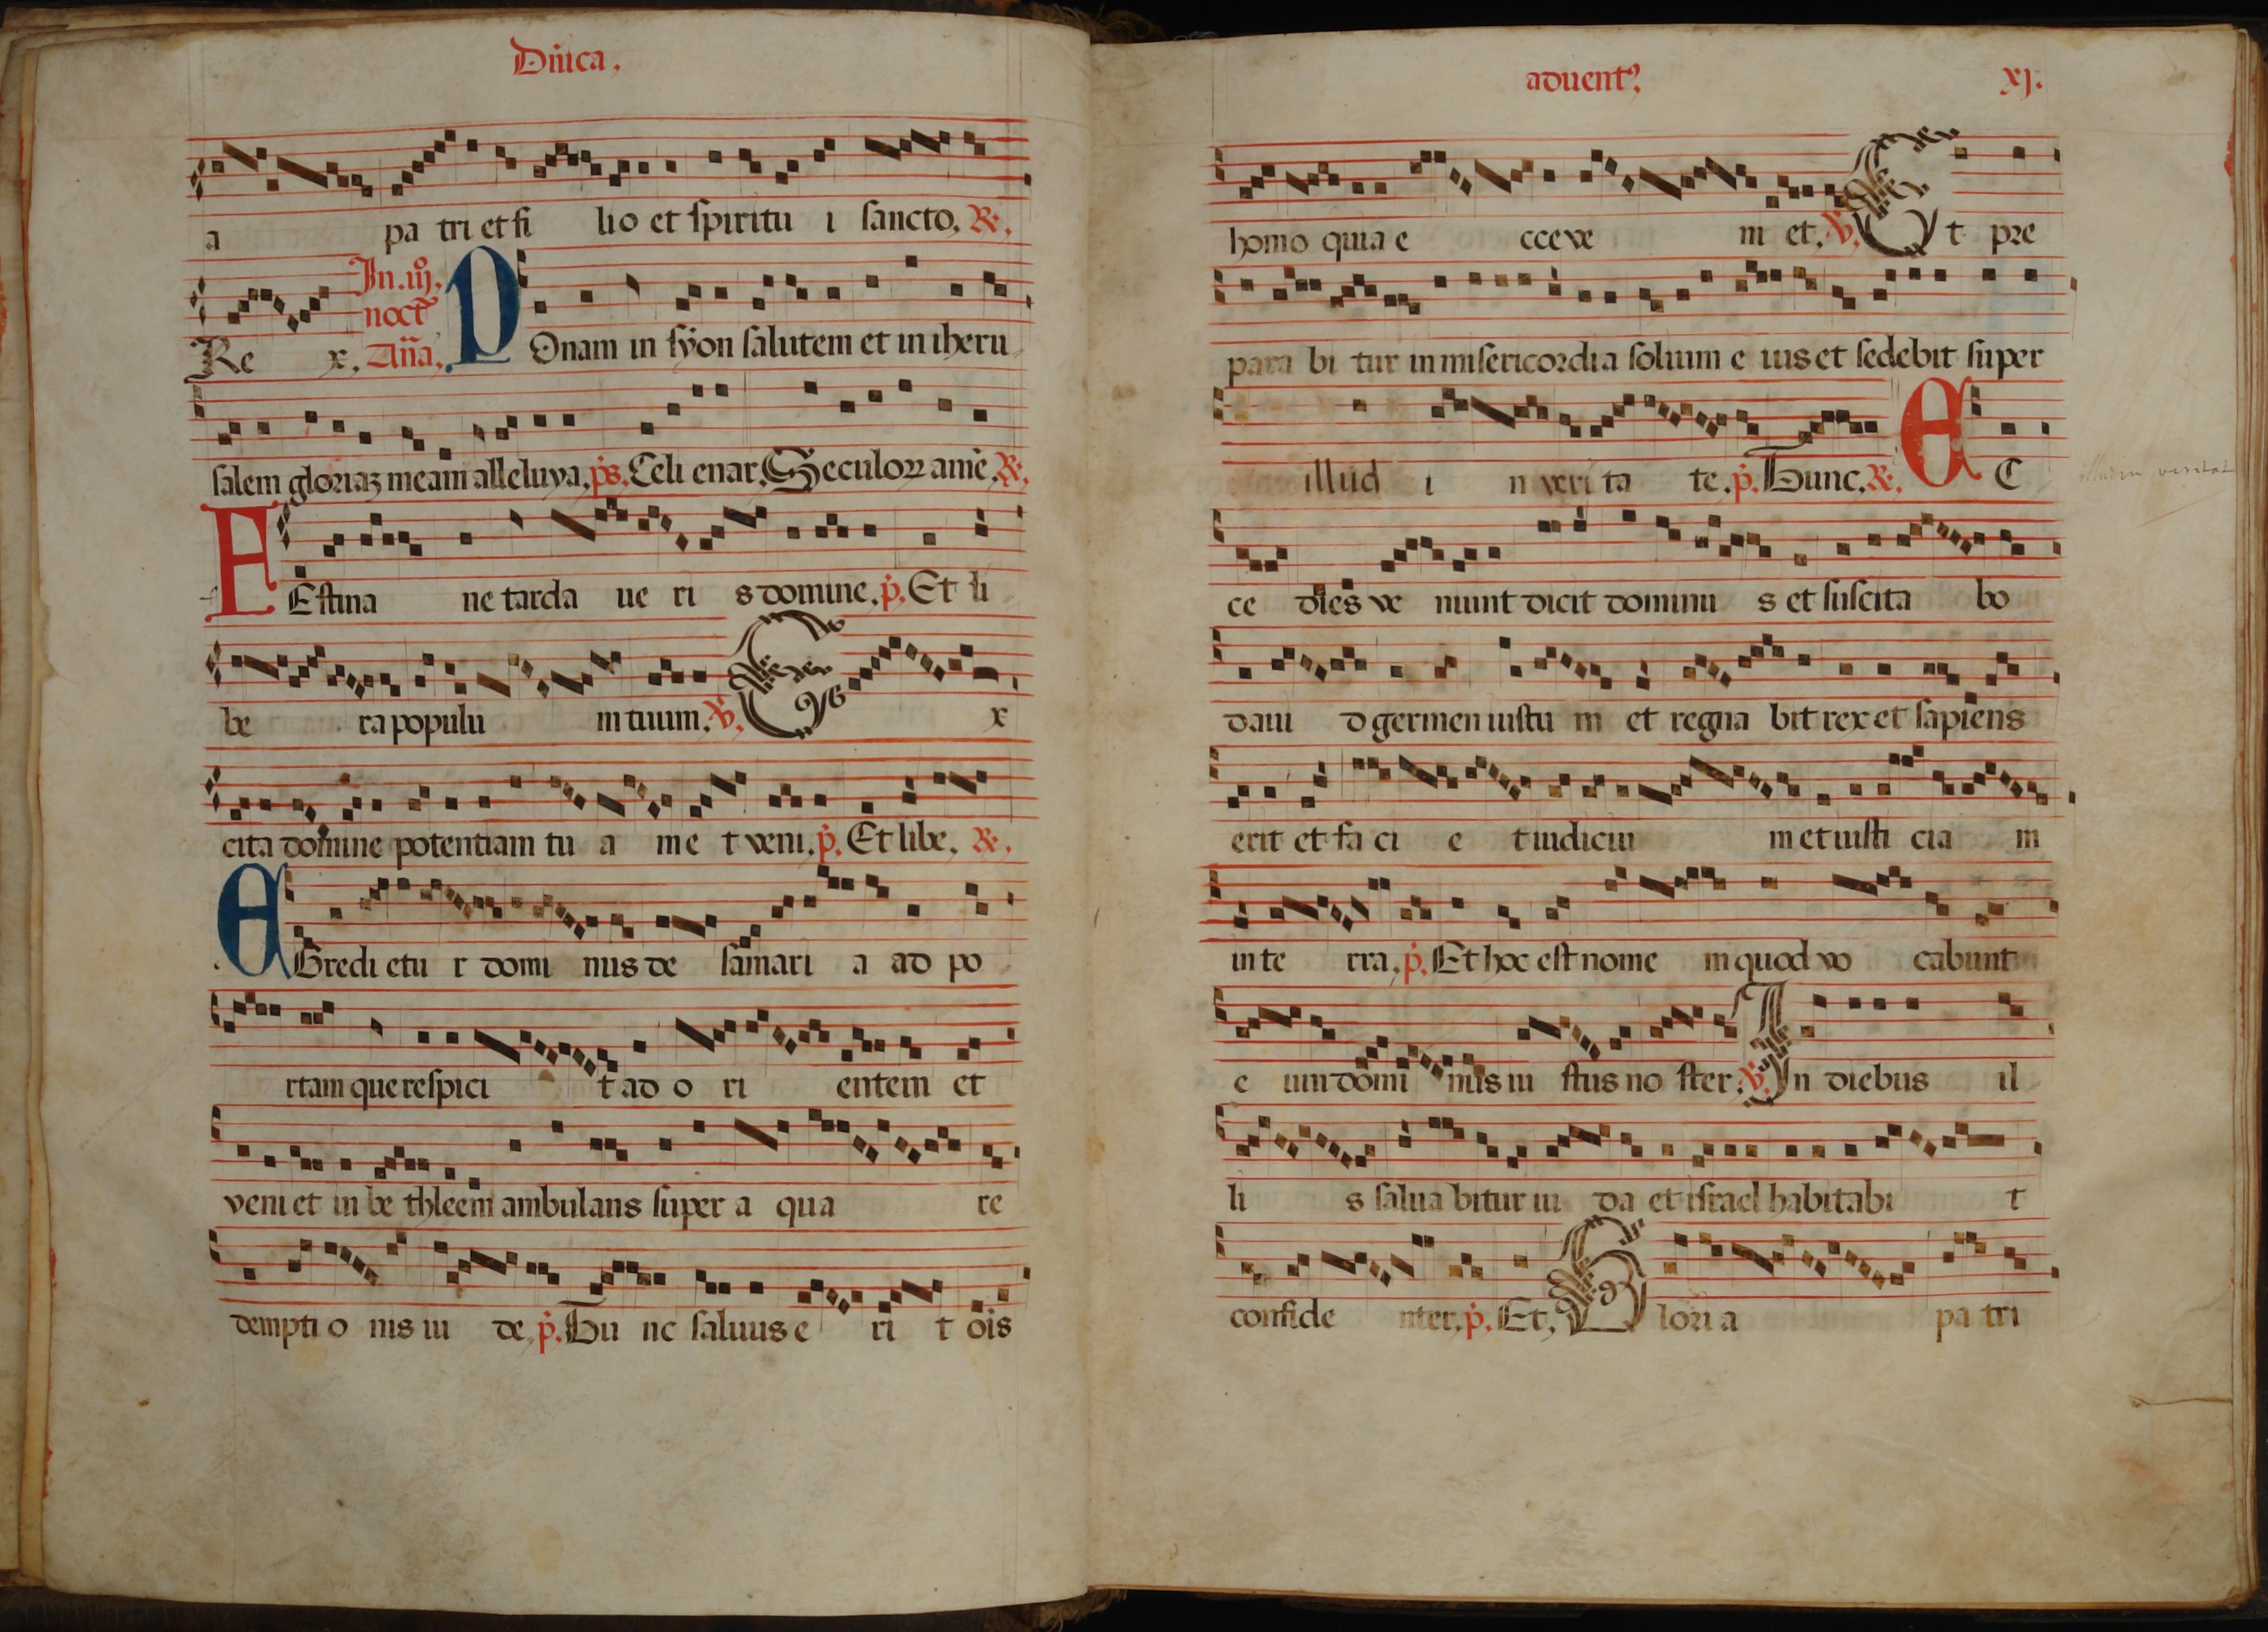 Dn̄ica.
a pa tri et fi lio et spiritu i sancto, ℟.
Re x. In .iij. noct̄ An̄a. DOnam in syon salutem et in iheru
salem gloriaʒ meam alleluya. p̄s. Celi enar, Seculoꝝ amē ℟.
FEstina ne tarda ue ri s domine. p̄. Et li
be ra populu m tuum. ℣. E x
cita domine potentiam tu a m e t veni. p̄. Et libe, ℟.
EGredi etu r domi nus de samari a ad po
rtam que respici t ad o ri entem et
veni et in be thleem ambulans super a qua re
dempti o nis iu de. p̄. Hu nc saluus e ri t oīs
aduentꝰ. xj.
homo quia e cce ve ni et. ℣. Et pre
para bi tur in misericordia solium e ius et sedebit super
illud i n veri ta te. p̄. Hunc. ℟. EC
ce dies ve niunt dicit dominu s et suscita bo
daui d germen iustu m et regna bit rex et sapiens
erit et fa ci e t iudiciu m et iusti cia m
in te rra. p̄. Et hoc est nome m quod vo cabunt
e um domi nus iu stus no ster. ℣. In diebus il
li s salua bitur iu da et israel habitabi t
confide nter. p̄. Et, Glori a pa tri